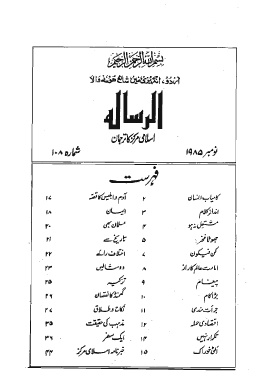 بسم اللہ الرحمن الرحیم
اردو، انگریزی میں شائع ہونے والا
الرسالہ
اسلامی مرکز کا ترجمان
نومبر ۱۹۸۵ شمارہ ۱۰۸
فہرست
کامیاب انسان ۲ آدم و ابلیس کا قصہ ۱۷
انداز کلام ۳ ایمان ۱۸
مستقبل دیکھو ۴ مسلمان بھی ۲۰
جھوٹا فخر ۵ تاریخ سے ۲۱
کن فیکون ۷ اختلاف رائے ۲۲
امامت عالم کا راز ۸ دو مثالیں ۲۳
پیغام ۹ تزکیہ ۲۵
بڑا کام ۱۰ گھمنڈ کا نقصان ۲۹
جرأت مندی ۱۱ نکاح و طلاق ۲۷
اقتصادی حملہ ۱۲ مذہب کی حقیقت ۳۵
ٹکراؤ نہیں ۱۴ ایک سفر ۳۹
آفاقی خوراک ۱۵ خبرنامہ اسلامی مرکز ۴۴